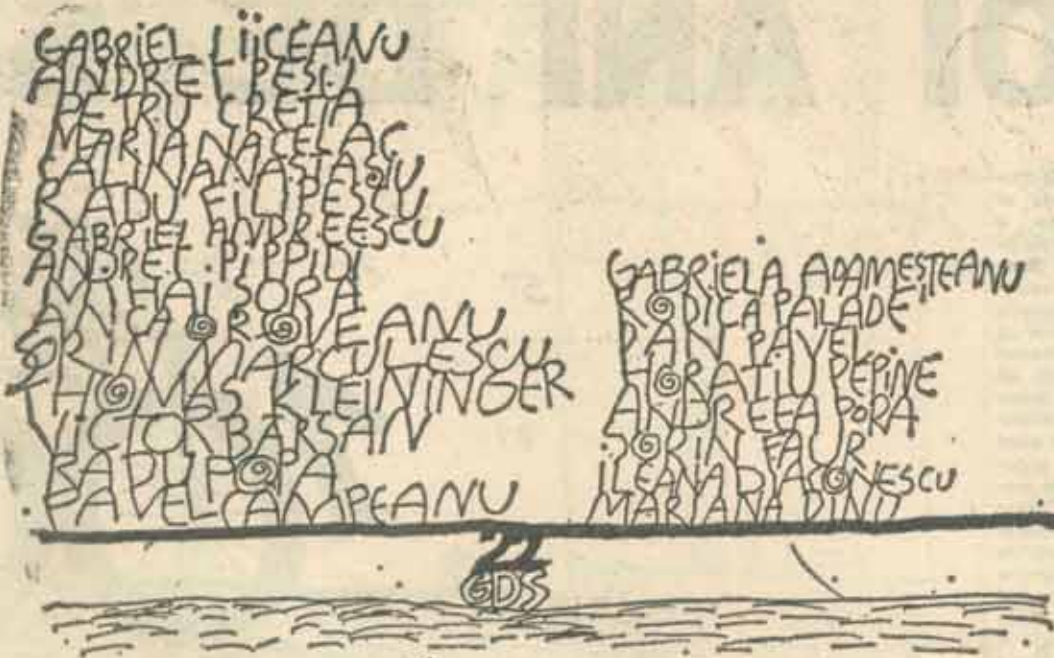 GABRIEL LIICEANU
ANDREI PLEȘU
PETRU CREȚIA
MARIANA CELAC
CALIN ANASTASIU
RADU FILIPESCU
GABRIEL ANDREESCU
ANDREI PIPPIDI
MIHAI ȘORA
ANCA OROVEANU
ORIN MARCULESCU
THOMAS KLEININGER
VICTOR BARSAN
RADU POPA
PAVEL CAMPEANU
GABRIELA ADAMEȘTEANU
RODICA PALADE
DAN PAVEL
HORATIU PEPINE
ANDREEA PORA
SORIN FAUR
ILEANA DIACONESCU
MARIANA DINU
22
GDS